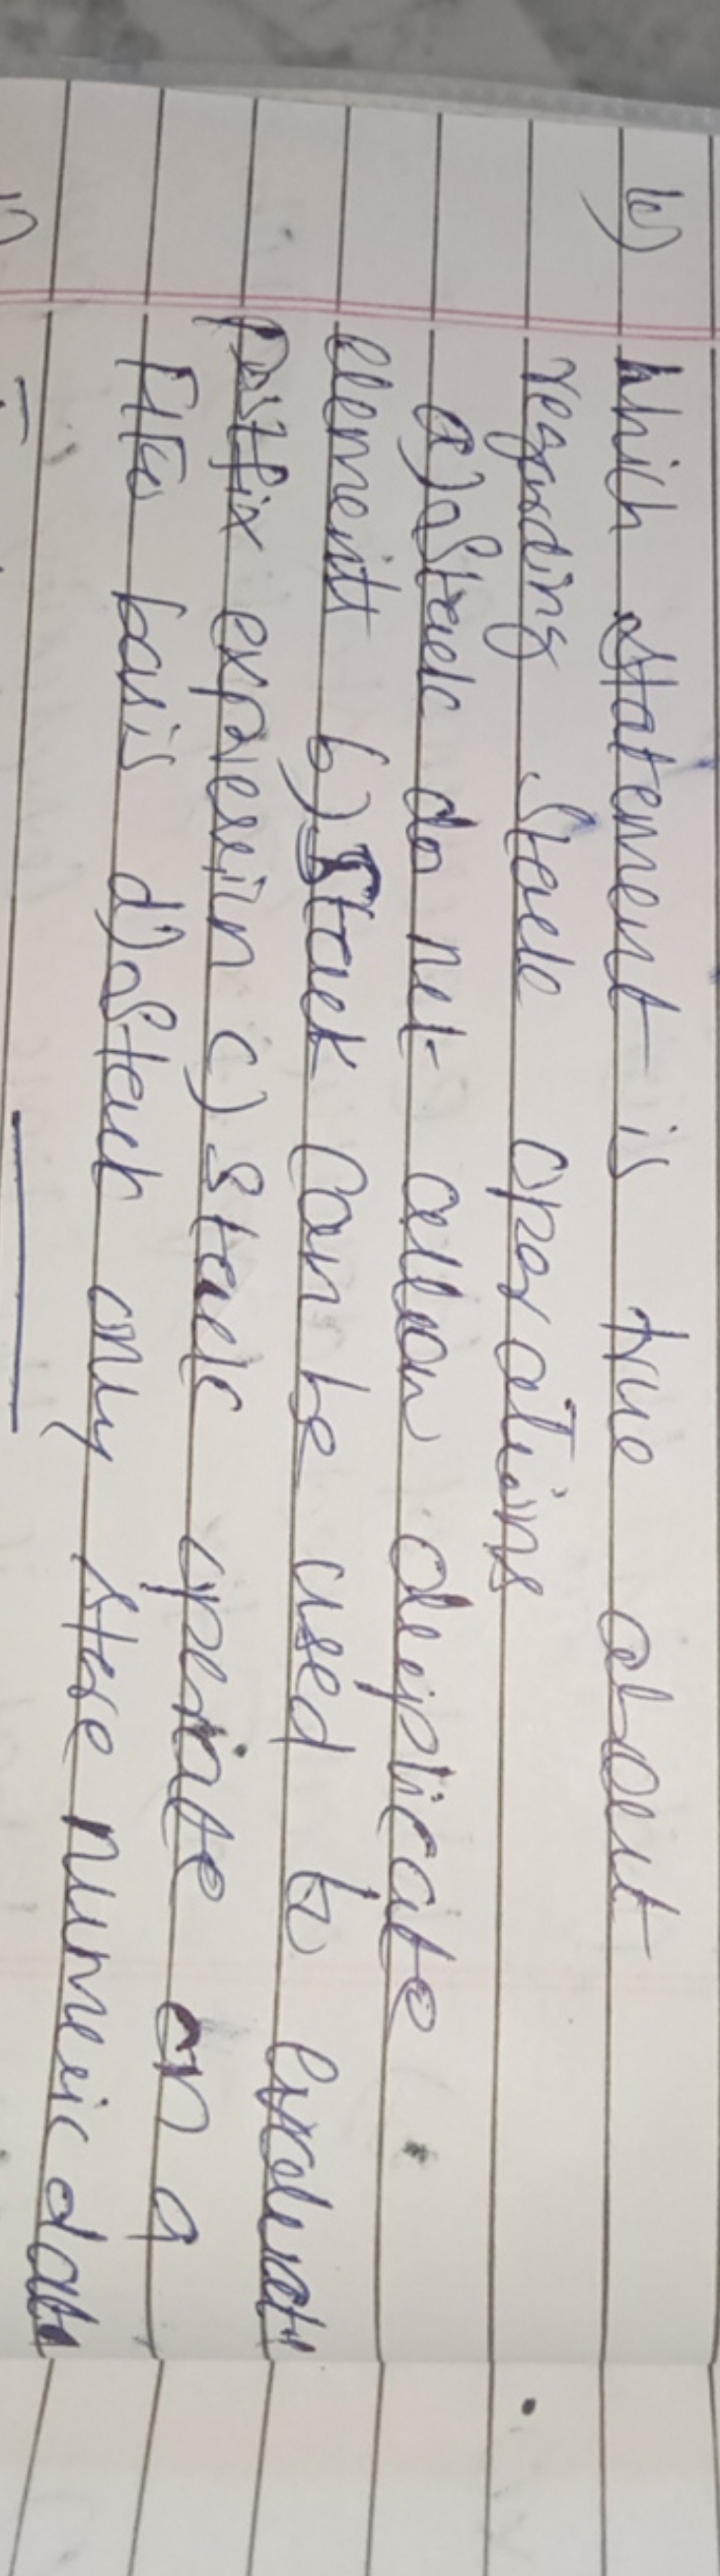 b) Which statement is true about
regarding Stack operations
a) Stack do not allow duplicate
element b) Stack can be used to evaluate
postfix expression c) Stack operate on a
FIFO basis d) Stack only store numeric data